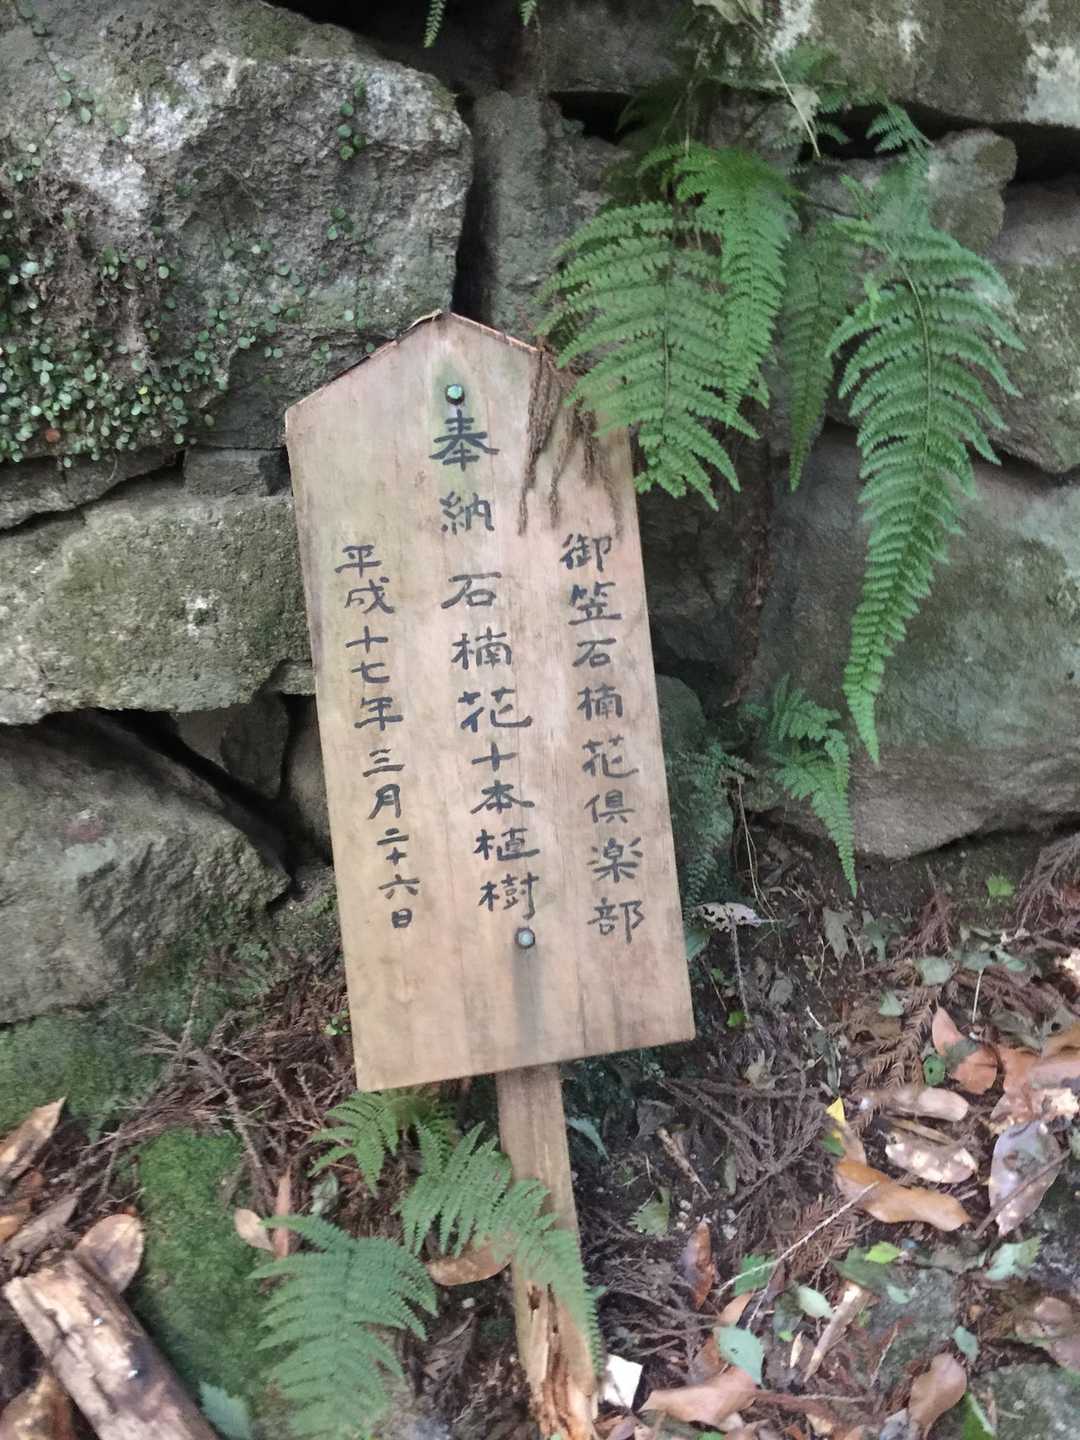 御笠石楠花倶楽部
奉納 石楠花十本植樹
平成十七年三月二十六日